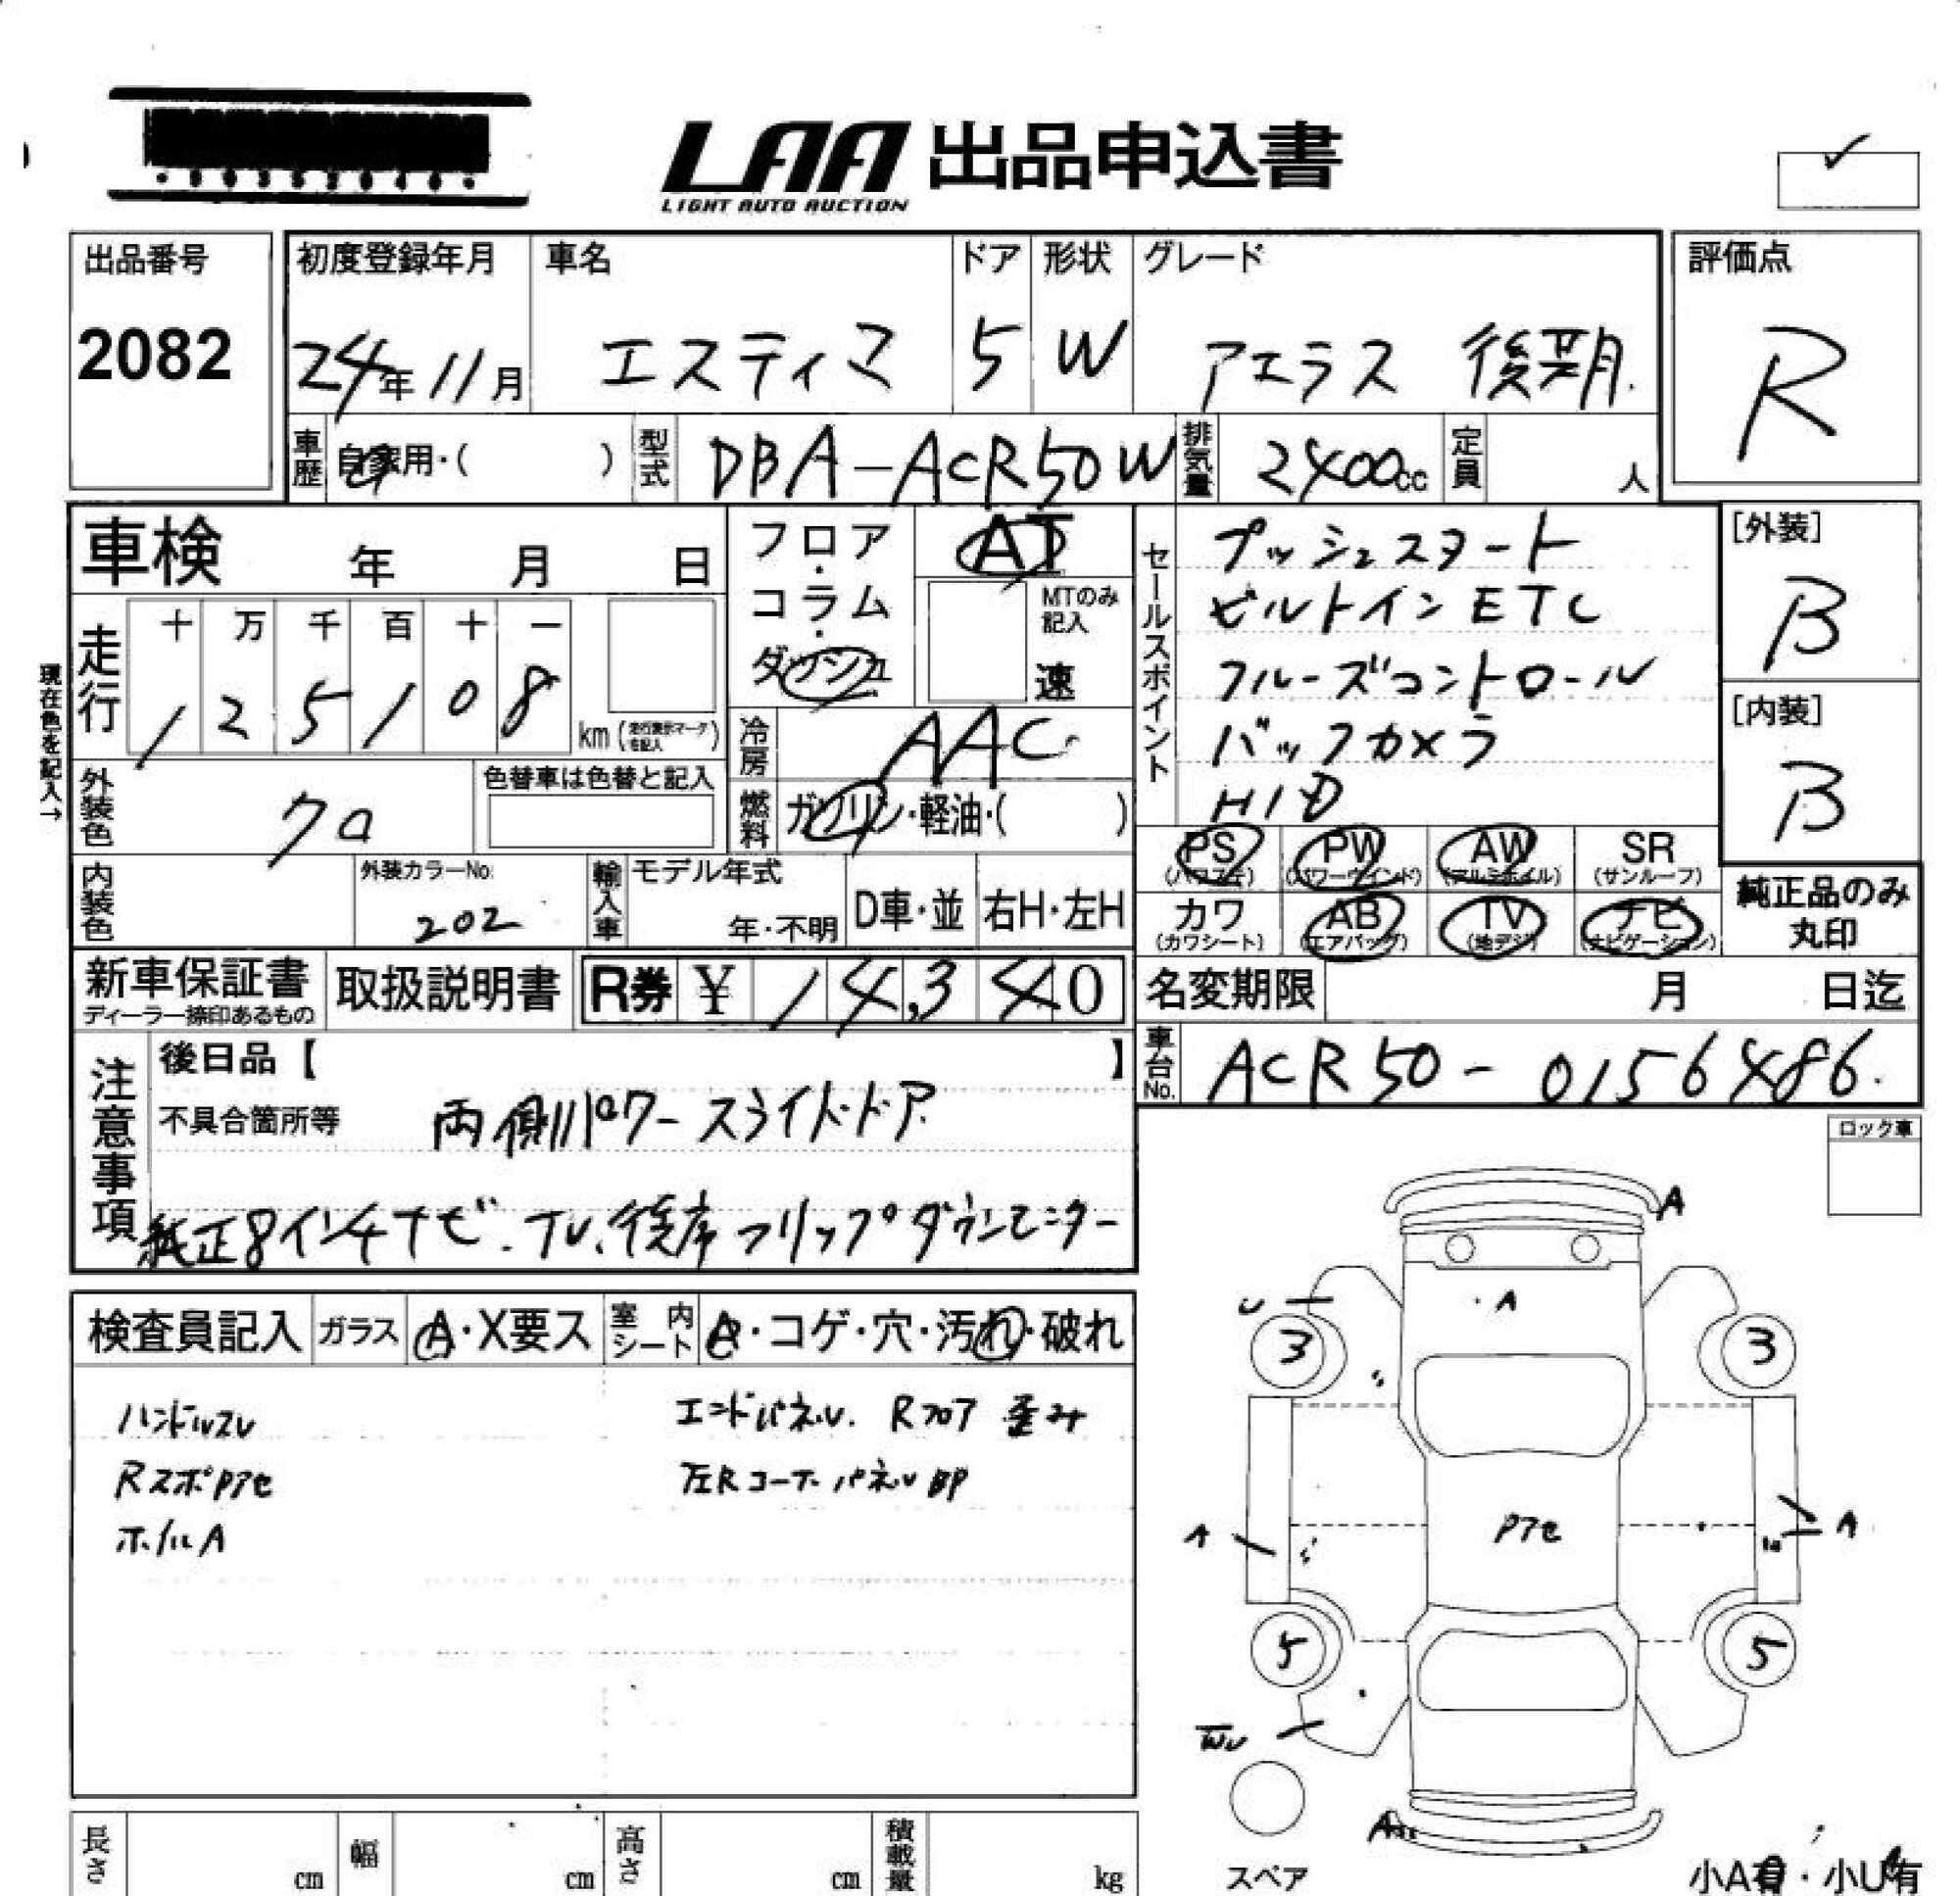 LAA 出品申込書
LIGHT AUTO AUCTION
出品番号
2082
初度登録年月
24年11月
車名
エスティマ
ドア
5
形状
W
グレード
アエラス 後期.
評価点
R
車歴
自家用・( )
型式
DBA-ACR50W
排気量
2400cc
定員
人
車検 年 月 日
フロア・コラム・ダッシュ
AT
MTのみ記入
速
走行
十 万 千 百 十 一
1 2 5 1 0 8
km (走行表示マークを記入)
現在色を記入→
冷房
AAC
外装色
クロ
色替車は色替と記入
燃料
ガソリン・軽油・( )
内装色
外装カラーNo.
202
輸入車
モデル年式
年・不明
D車・並
右H・左H
セールスポイント
プッシュスタート
ビルトインETC
クルーズコントロール
バックカメラ
HID
[外装]
B
[内装]
B
PS (パワステ)
PW (パワーウインド)
AW (アルミホイル)
SR (サンルーフ)
カワ (カワシート)
AB (エアバッグ)
TV (地デジ)
ナビ (ナビゲーション)
純正品のみ丸印
新車保証書
ディーラー捺印あるもの
取扱説明書
R券 ¥ 14,340
名変期限 月 日迄
車台No.
ACR50-0156486.
注意事項
後日品【 】
不具合箇所等
両側パワースライドドア
純正8インチナビ.TV.後席フリップダウンモニター
ロック車
検査員記入
ガラス
A・X要ス
室内シート
・コゲ・穴・汚れ・破れ
ハンドルスレ
RスポPアセ
ホイルA
エンドパネル. Rフロア 歪み
左Rコーナーパネル BP
A
U
A
3
3
A
Pアセ
A
5
5
スペア
小A有・小U有
長さ cm
幅 cm
高さ cm
積載量 kg